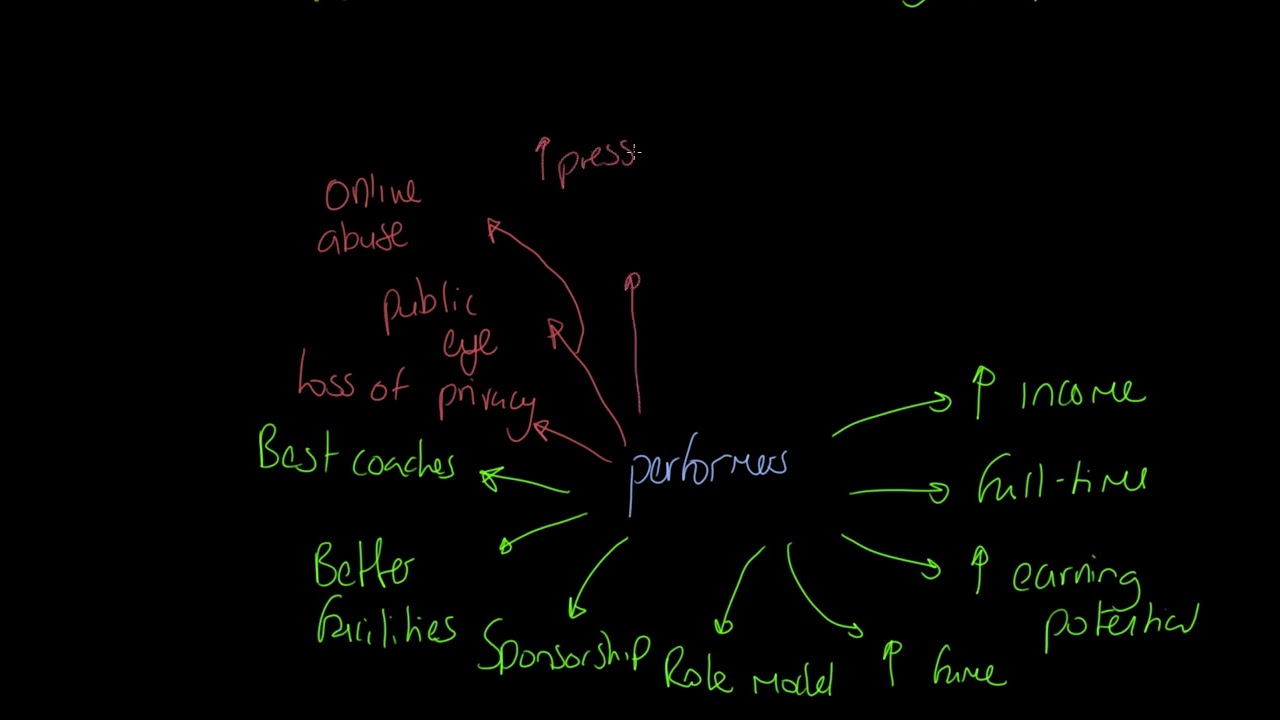 ↑ press
Online
abuse
public
eye
loss of privacy
performers
Best coaches
Better
facilities
Sponsorship
Role model
↑ fame
↑ earning
potential
full-time
↑ income